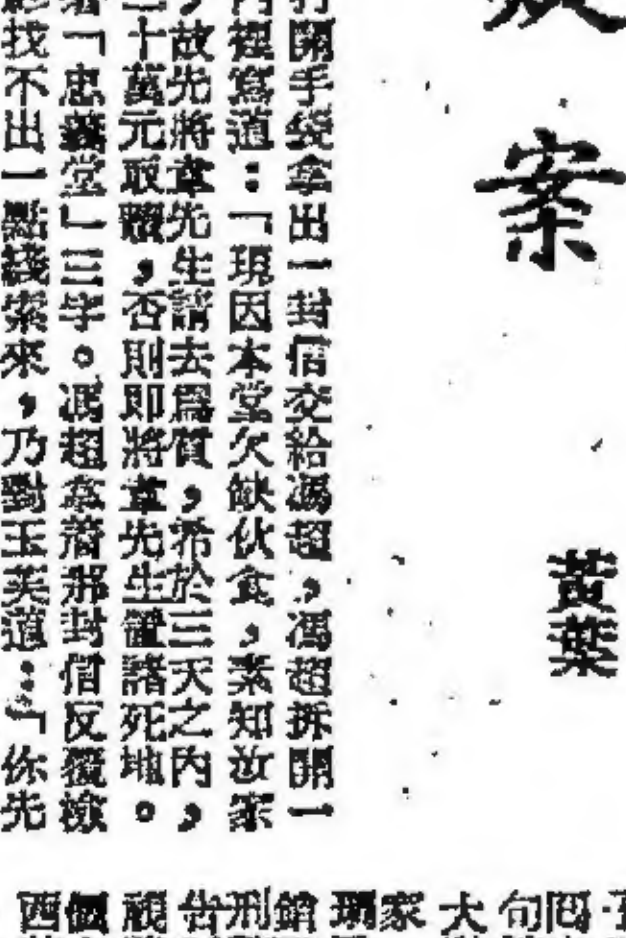 案
黃葉
打開手袋拿出一封信交給馮超，馮超拆開一
裡寫道：「現因本堂欠缺伙食，素知汝家
，故先將韋先生請去為質，希於三天之內，
二十萬元取贖，否則即將韋先生置諸死地。
「忠義堂」三字。馮超拿着那封信反覆檢
找不出一點綫索來，乃對玉芙道：「你先
句大家瑪鎗刑告視個西